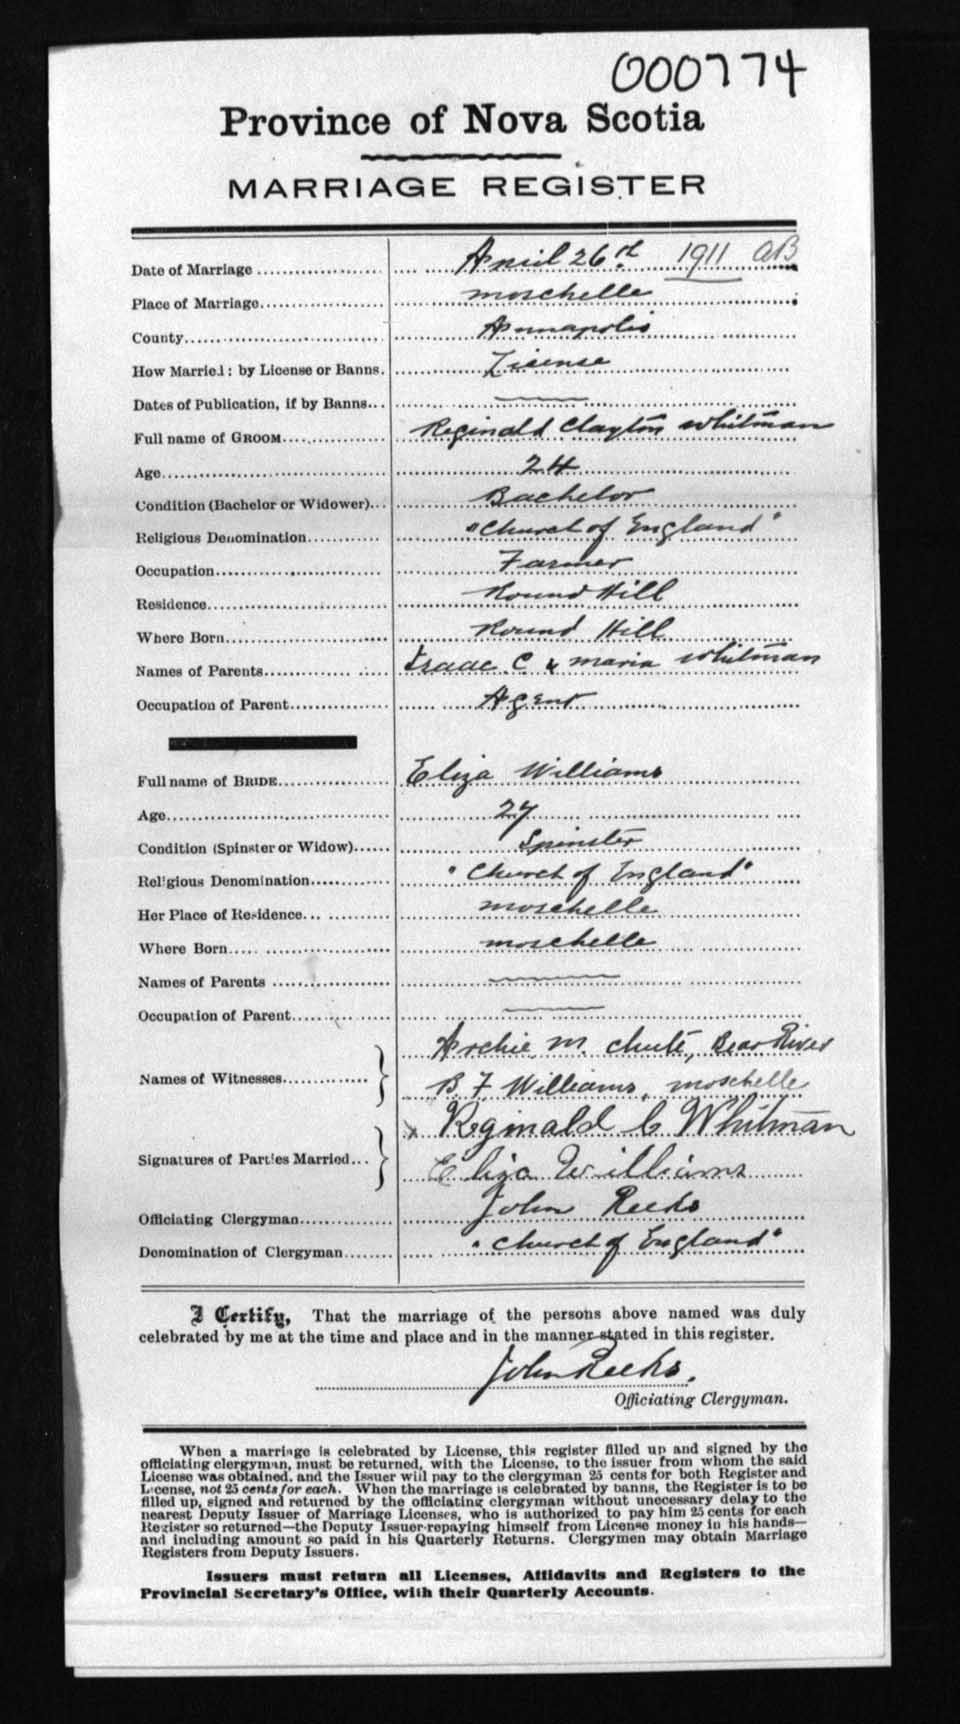 000774
Province of Nova Scotia
MARRIAGE REGISTER
Date of Marriage April 26th 1911 AB
Place of Marriage moschelle
County Annapolis
How Married: by License or Banns. License
Dates of Publication, if by Banns
Full name of GROOM Reginald Clayton Whitman
Age 24
Condition (Bachelor or Widower) Bachelor
Religious Denomination "Church of England"
Occupation Farmer
Residence Round Hill
Where Born Round Hill
Names of Parents Isaac C & maria Whitman
Occupation of Parent Agent
Full name of BRIDE Eliza Williams
Age 27
Condition (Spinster or Widow) Spinster
Religious Denomination "Church of England"
Her Place of Residence moschelle
Where Born moschelle
Names of Parents
Occupation of Parent
Archie M. Chute, Bear River
Names of Witnesses
B F Williams, moschelle
Reginald C Whitman
Signatures of Parties Married
Eliza Williams
Officiating Clergyman John Reeks
Denomination of Clergyman "Church of England"
I Certify, That the marriage of the persons above named was duly
celebrated by me at the time and place and in the manner stated in this register.
John Reeks.
Officiating Clergyman.
When a marriage is celebrated by License, this register filled up and signed by the
officiating clergyman, must be returned, with the License, to the issuer from whom the said
License was obtained, and the Issuer will pay to the clergyman 25 cents for both Register and
License, not 25 cents for each. When the marriage is celebrated by banns, the Register is to be
filled up, signed and returned by the officiating clergyman without unecessary delay to the
nearest Deputy Issuer of Marriage Licenses, who is authorized to pay him 25 cents for each
Register so returned—the Deputy Issuer repaying himself from License money in his hands—
and including amount so paid in his Quarterly Returns. Clergymen may obtain Marriage
Registers from Deputy Issuers.
Issuers must return all Licenses, Affidavits and Registers to the
Provincial Secretary's Office, with their Quarterly Accounts.